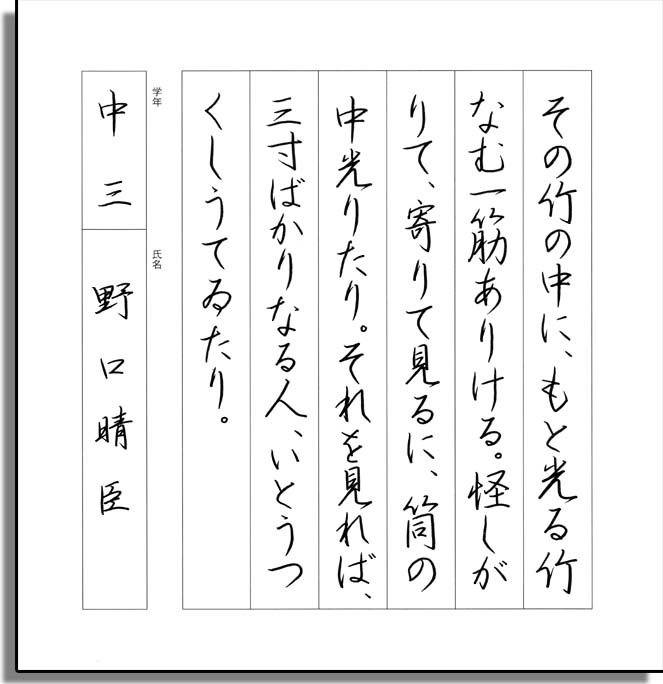 その竹の中に、もと光る竹
なむ一筋ありける。怪しが
りて、寄りて見るに、筒の
中光りたり。それを見れば、
三寸ばかりなる人、いとうつ
くしうてゐたり。
学年
中三
氏名
野口晴臣